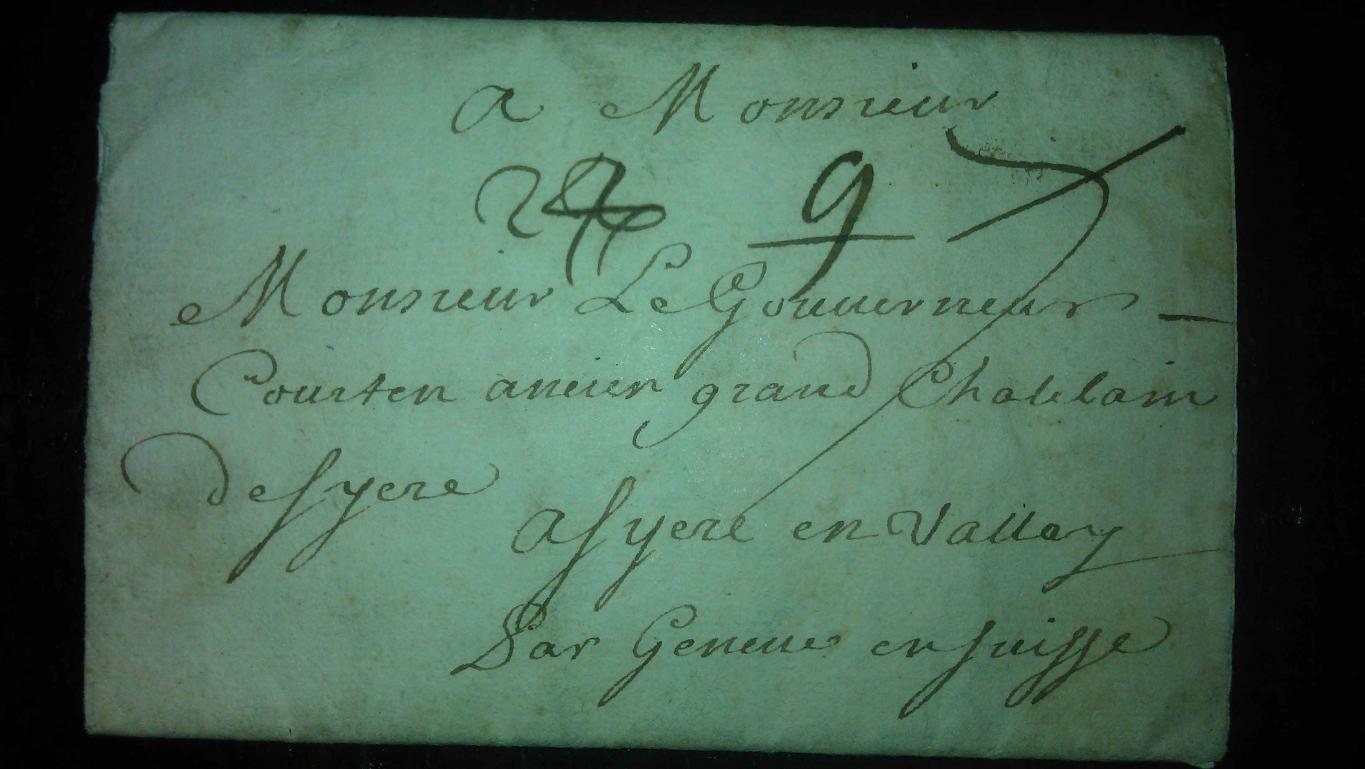 a Monsieur
24 9
Monsieur Le Gouuerneur
Courten ancien grand Chatelain
de Syere
a Syere en Vallay
Par Geneue en Suisse